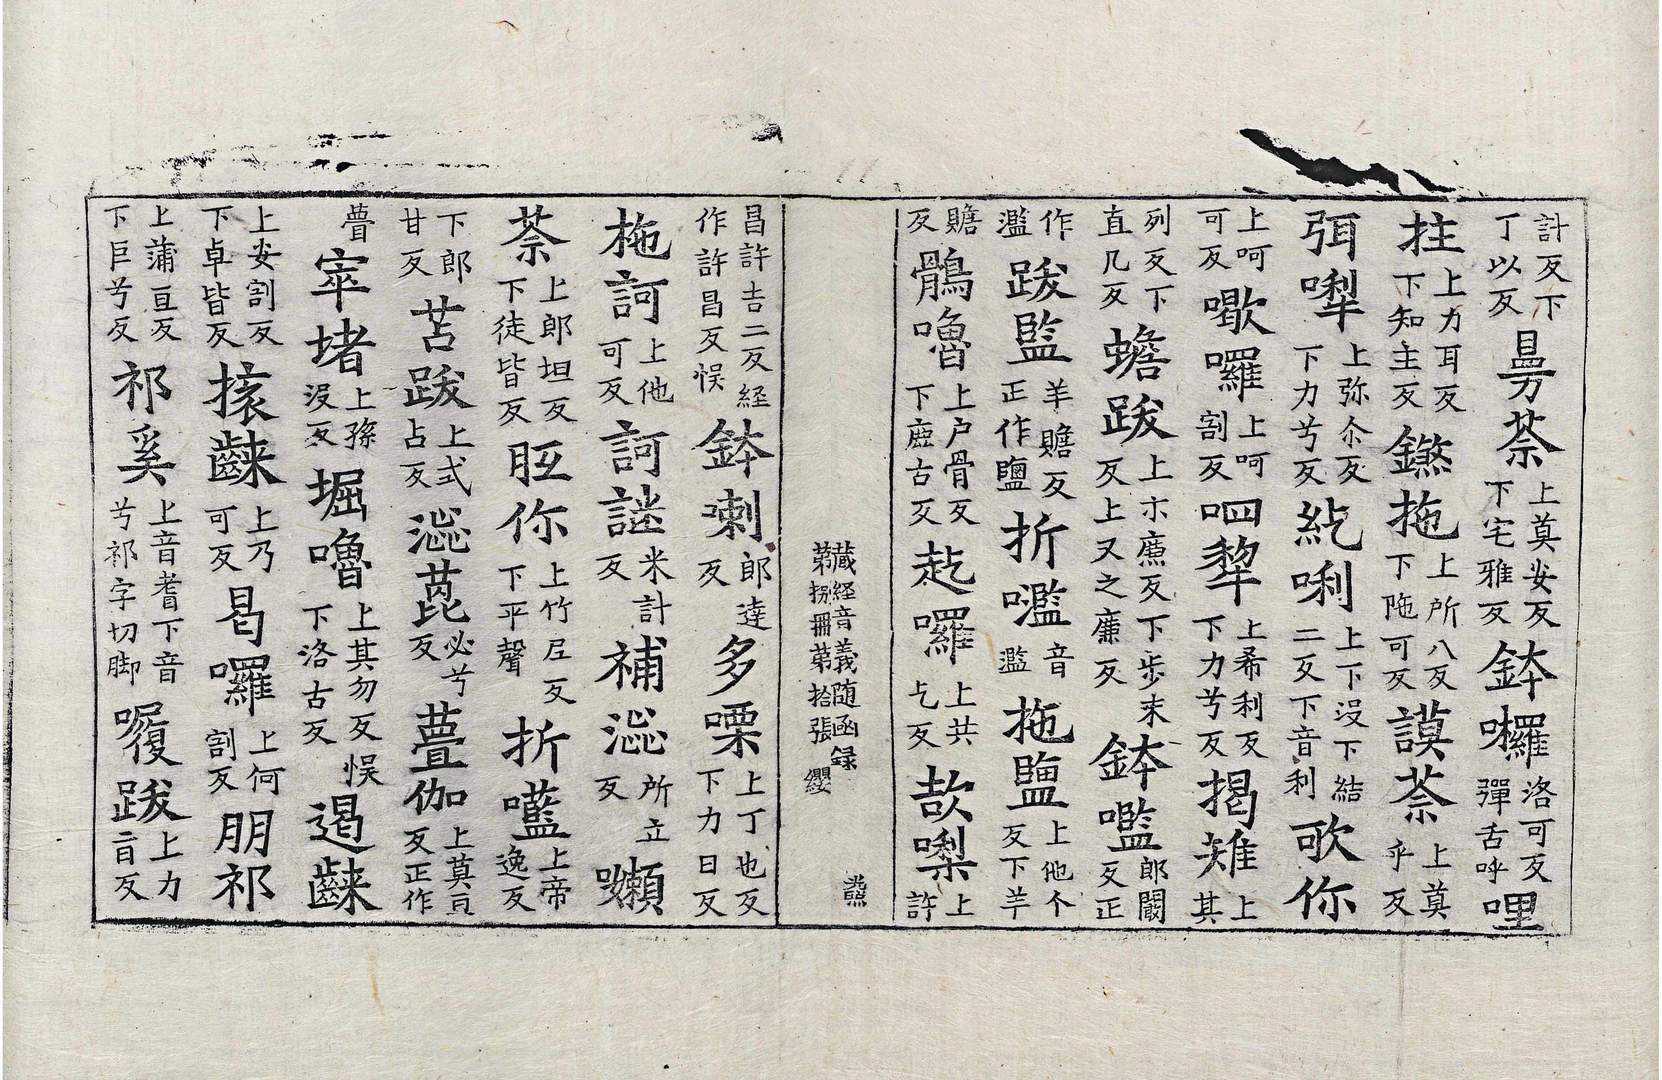 計反下丁以反㝵茶上莫安反下宅雅反鉢囉洛可反彈舌呼哩
拄上力耳反下知主反鑠拖上所八反下陁可反謨荼上莫乎反
弭㗚上弥尒反下力兮反紇唎上下沒下結二反下音利歌你
上呵可反囉上呵割反呬犂上希利反下力兮反揭雉上其
列反下直几反蟾跋上市廉反下步末反上又之廉反鉢㘕郎闞反正
作濫跋監羊贍反正作鹽折㘕音濫拖鹽上他个反下羊
贍反鶻嚕上戶骨反下鹿古反趂囉上共乞反㰤㗚上許
藏経音義随函録第拐冊第拾張纓
昌許吉二反経作許昌反悮鉢喇郎達反多㗚上丁也反下力日反
柂訶上他可反訶謎米計反補澁所立反嬾
茶上郎坦反下徒皆反胝你上竹尼反下平聲折㘕上帝逸反
下郎甘反苫跋上式占反澁毘必兮反薑伽上莫亘反正作
瞢窣堵上孫沒反堀嚕上其勿反悮下洛古反遏
上安割反下卓皆反上乃可反曷囉上何割反朋祁
上蒲亘反下巨兮反祁奚上音耆下音兮祁字切脚跋上力